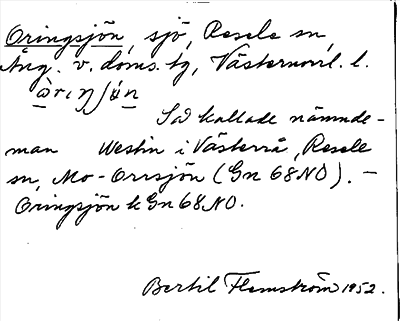 Oringsjön, sjö, Resele sn,
Ång. v. doms. tg, Västernorrl. l.
òrıŋʃö́n
Så kallade nämnde-
man Westin i Västerrå, Resele
sn, Mo-Orrsjön (Gn 68 NO). —
Oringsjön k Gn 68 NO.
Bertil Flemström 1952.